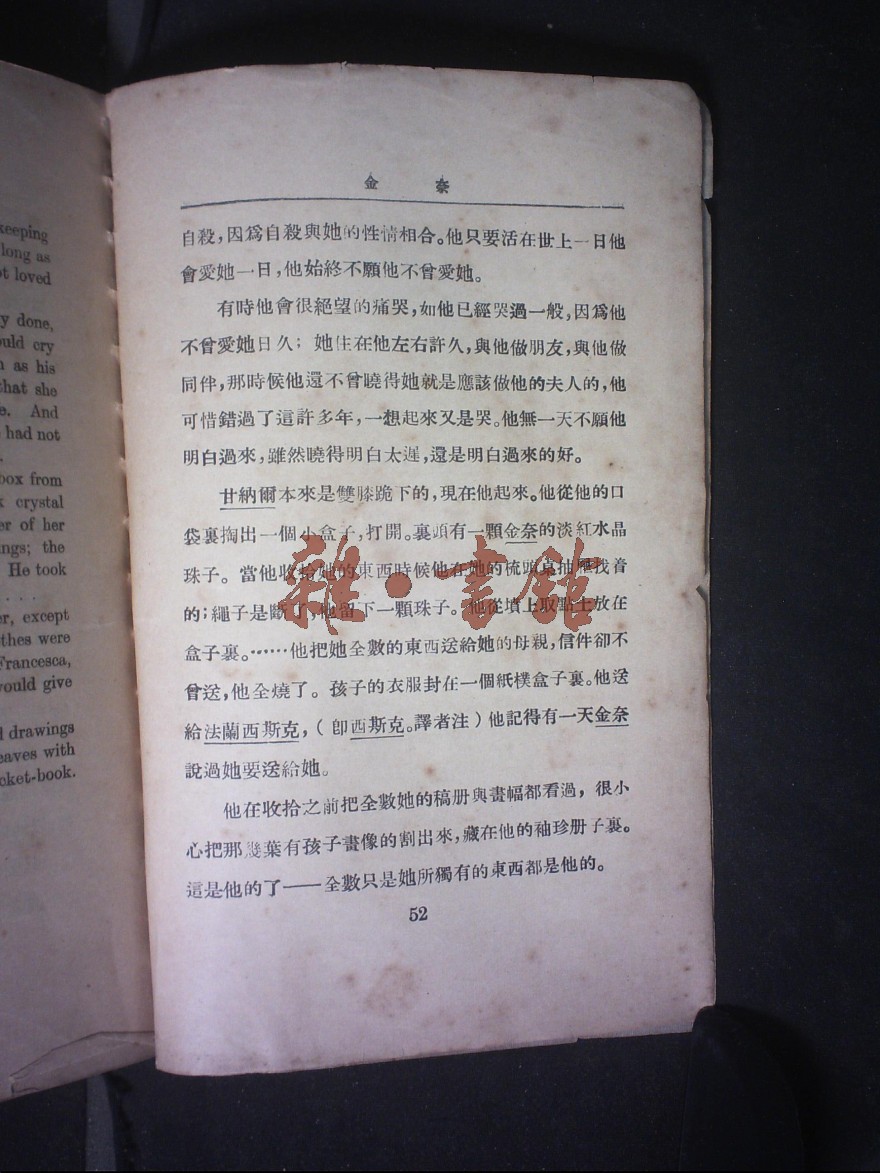 keeping
long as
ot loved
y done,
ould cry
n as his
that she
e. And
had not
box from
k crystal
er of her
ngs; the
He took
. . . .
er, except
thes were
Francesca,
would give
d drawings
eaves with
cket-book.
金 奈
自殺，因爲自殺與她的性情相合。他只要活在世上一日他
會愛她一日，他始終不願他不曾愛她。
有時他會很絕望的痛哭，如他已經哭過一般，因爲他
不曾愛她日久；她住在他左右許久，與他做朋友，與他做
同伴，那時候他還不曾曉得她就是應該做他的夫人的，他
可惜錯過了這許多年，一想起來又是哭。他無一天不願他
明白過來，雖然曉得明白太遲，還是明白過來的好。
甘納爾本來是雙膝跪下的，現在他起來。他從他的口
袋裏掏出一個小盒子，打開。裏頭有一顆金奈的淡紅水晶
珠子。當他收拾她的東西時候他在她的梳頭桌抽屜找着
的；繩子是斷了，他留下一顆珠子。他從墳上取點土放在
盒子裏。……他把她全數的東西送給她的母親，信件卻不
曾送，他全燒了。孩子的衣服封在一個紙樸盒子裏。他送
給法蘭西斯克，（卽西斯克。譯者注）他記得有一天金奈
說過她要送給她。
他在收拾之前把全數她的稿册與畫幅都看過，很小
心把那幾葉有孩子畫像的割出來，藏在他的袖珍册子裏。
這是他的了——全數只是她所獨有的東西都是他的。
52
雜·書館